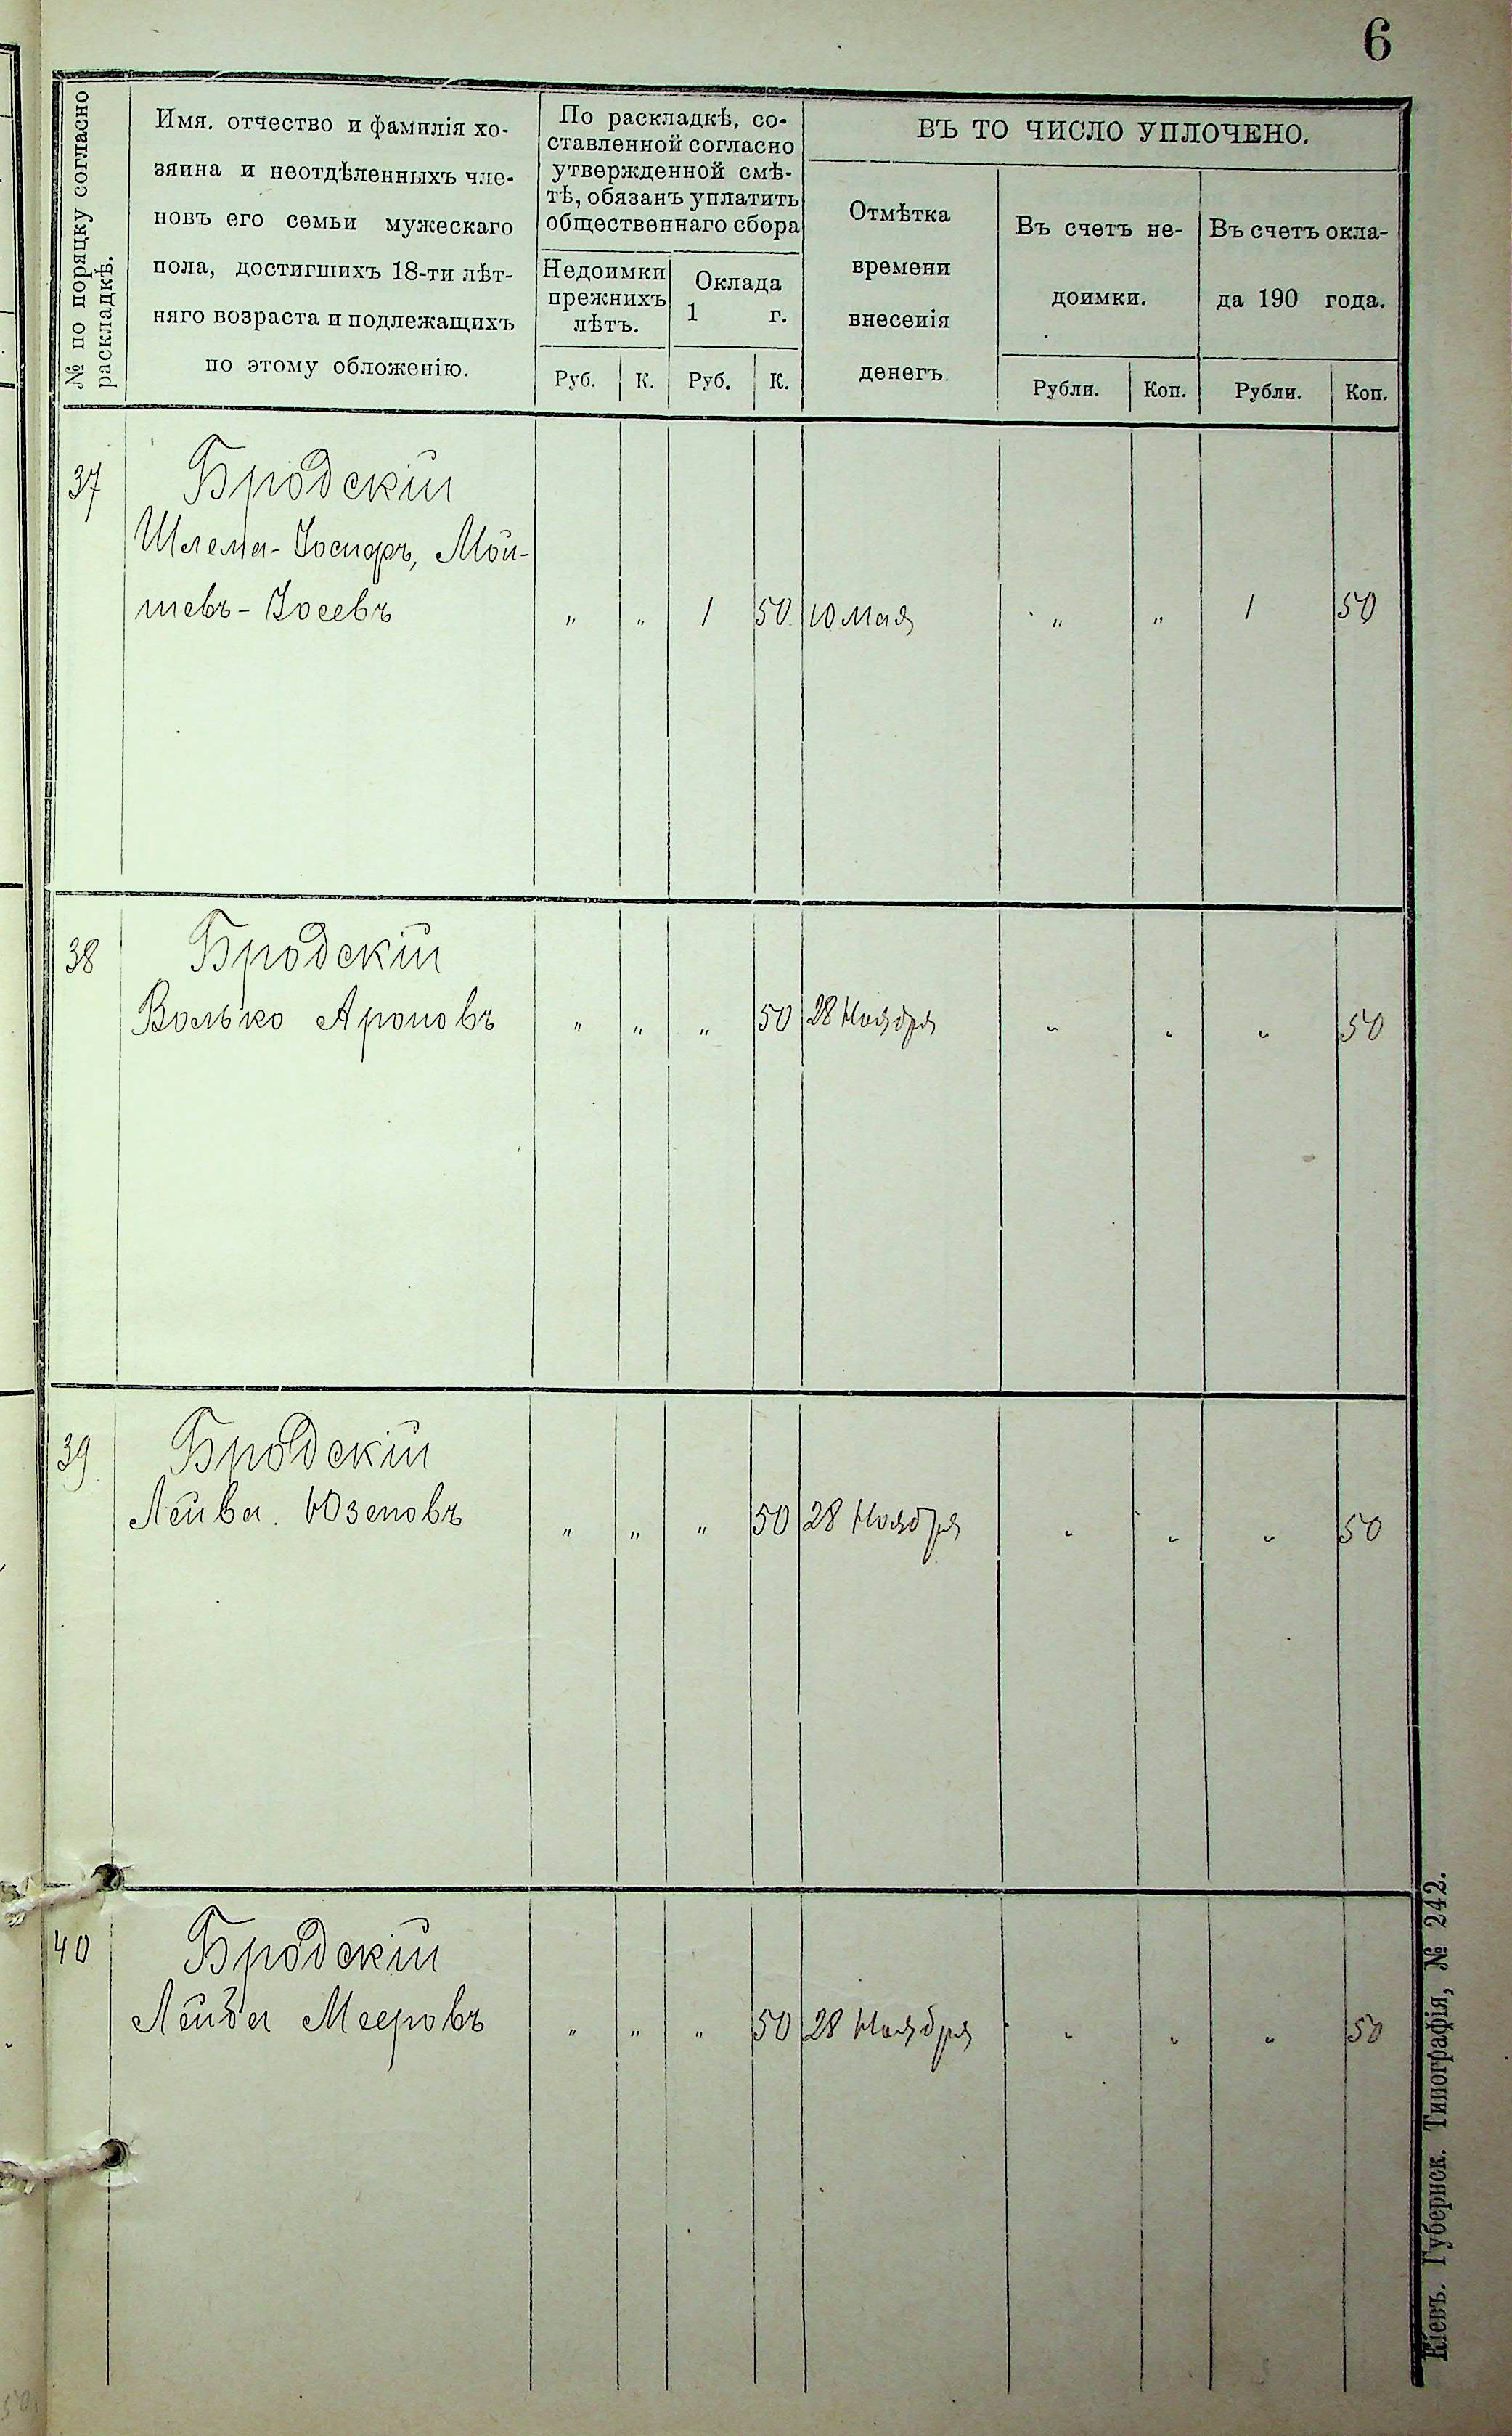 6
№ по порядку согласно
раскладкѣ.
Имя, отчество и фамилія хо-
зяина и неотдѣленныхъ чле-
новъ его семьи мужескаго
пола, достигшихъ 18-ти лѣт-
няго возраста и подлежащихъ
по этому обложенію.
По раскладкѣ, со-
ставленной согласно
утвержденной смѣ-
тѣ, обязанъ уплатить
общественнаго сбора
Недоимки
прежнихъ
лѣтъ.
Оклада
1 г.
Руб. К. Руб. К.
ВЪ ТО ЧИСЛО УПЛОЧЕНО.
Отмѣтка
времени
внесенія
денегъ.
Въ счетъ не-
доимки.
Въ счетъ окла-
да 190 года.
Рубли. Коп. Рубли. Коп.
37 Бродскій
Шлема-Іосифъ, Мой-
шевъ-Іосевъ " " 1 50 10 Мая " " 1 50
38 Бродскій
Волько Ароновъ " " " 50 28 Ноября " " " 50
39 Бродскій
Лейва Юзеповъ " " " 50 28 Ноября " " " 50
40 Бродскій
Лейба Мееровъ " " " 50 28 Ноября " " " 50
Кіевъ. Губернск. Типографія, № 242.